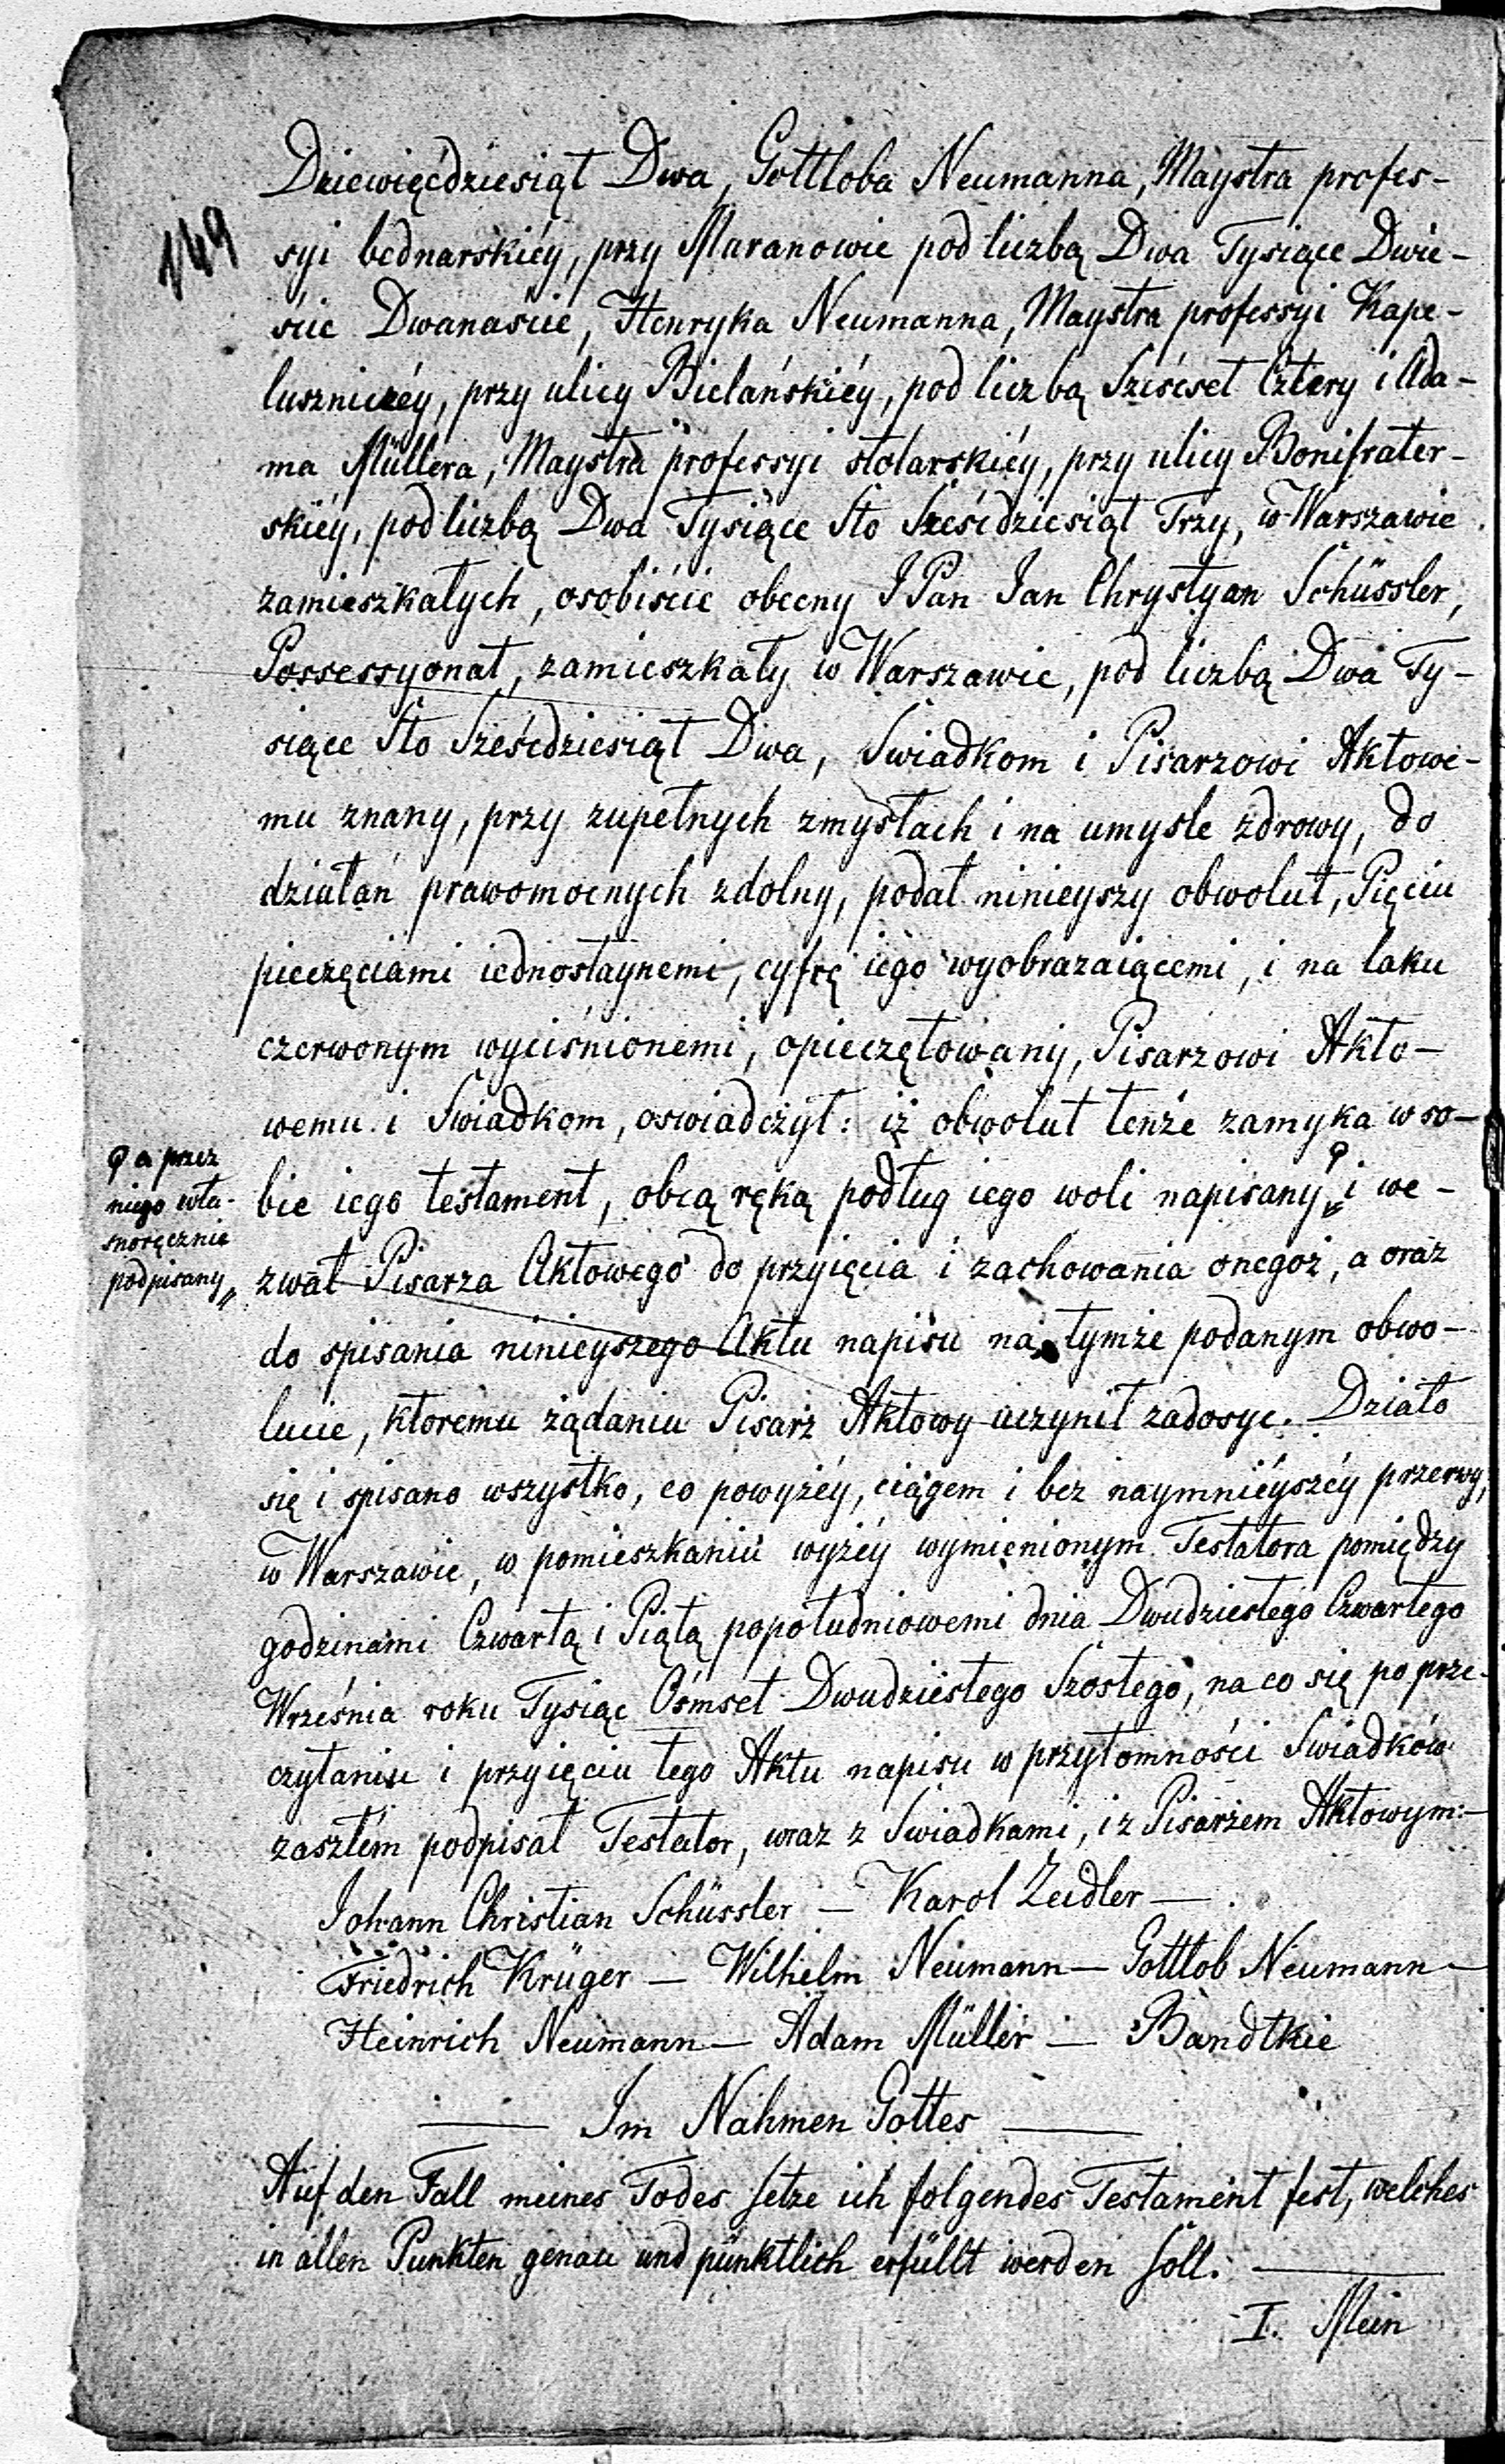 Dziewięćdziesiąt Dwa, Gottloba Neumanna, Maystra profes-
149
syi bednarskiéy, przy Maranowie pod liczbą Dwa Tysiące Dwie-
ście Dwanaście, Henryka Neumanna, Maystra professyi Kape-
luszniczéy, przy ulicy Bielańskiéy, pod liczbą Sześćset Cztery i Ada-
ma Müllera, Maystra professyi stolarskiéy, przy ulicy Bonifrater-
skiéy, pod liczbą Dwa Tysiące Sto Sześćdziesiąt Trzy, w Warszawie
zamieszkałych, osobiście obecny J Pan Jan Chrystyan Schüssler,
Possessyonat, zamieszkały w Warszawie, pod liczbą Dwa Ty-
siące Sto Sześćdziesiąt Dwa, Swiadkom i Pisarzowi Aktowe-
mu znany, przy zupełnych zmysłach i na umysle zdrowy, do
działań prawomocnych zdolny, podał ninieyszy obwolut, Pięciu
pieczęciami iednostaynemi, cyfrę iego wyobrazaiącemi, i na laku
czerwonym wyciśnionemi, opieczętowany, Pisarzowi Akto-
wemu i Swiadkom, oswiadczył: iż obwolut tenże zamyka w so-
bie iego testament, obcą ręką podług iego woli napisany, i we-
zwał Pisarza Aktowego do przyięcia i zachowania onegoż, a oraz
do spisania ninieyszego Aktu napisu na tymże podanym obwo-
lucie, ktoremu żądaniu Pisarz Aktowy uczynił zadosyc. Działo
się i spisano wszystko, co powyżéy, ciągem i bez naymniéyszéy przerwy,
w Warszawie, w pomieszkaniu wyżéy wymienionym Testatora pomiędzy
godzinami Czwartą i Piątą popołudniowemi dnia Dwudziestego Czwartego
Września roku Tysiąc Ośmset Dwudziestego Szostego, na co się po prze-
czytaniu i przyięciu tego Aktu napisu w przytomności Swiadków
zaszłém podpisał Testator, wraz z Swiadkami, i z Pisarzem Aktowym:-
Johann Christian Schüssler — Karol Zeidler —
Friedrich Krüger — Wilhelm Neumann — Gottlob Neumann —
Heinrich Neumann — Adam Müller — Bandtkie
a przez
niego wła-
snoręcznie
podpisany
— Im Nahmen Gottes —
Auf den Fall meines Todes setze ich folgendes Testament fest, welches
in allen Punkten genau und pünktlich erfüllt werden soll. —
I. Mein